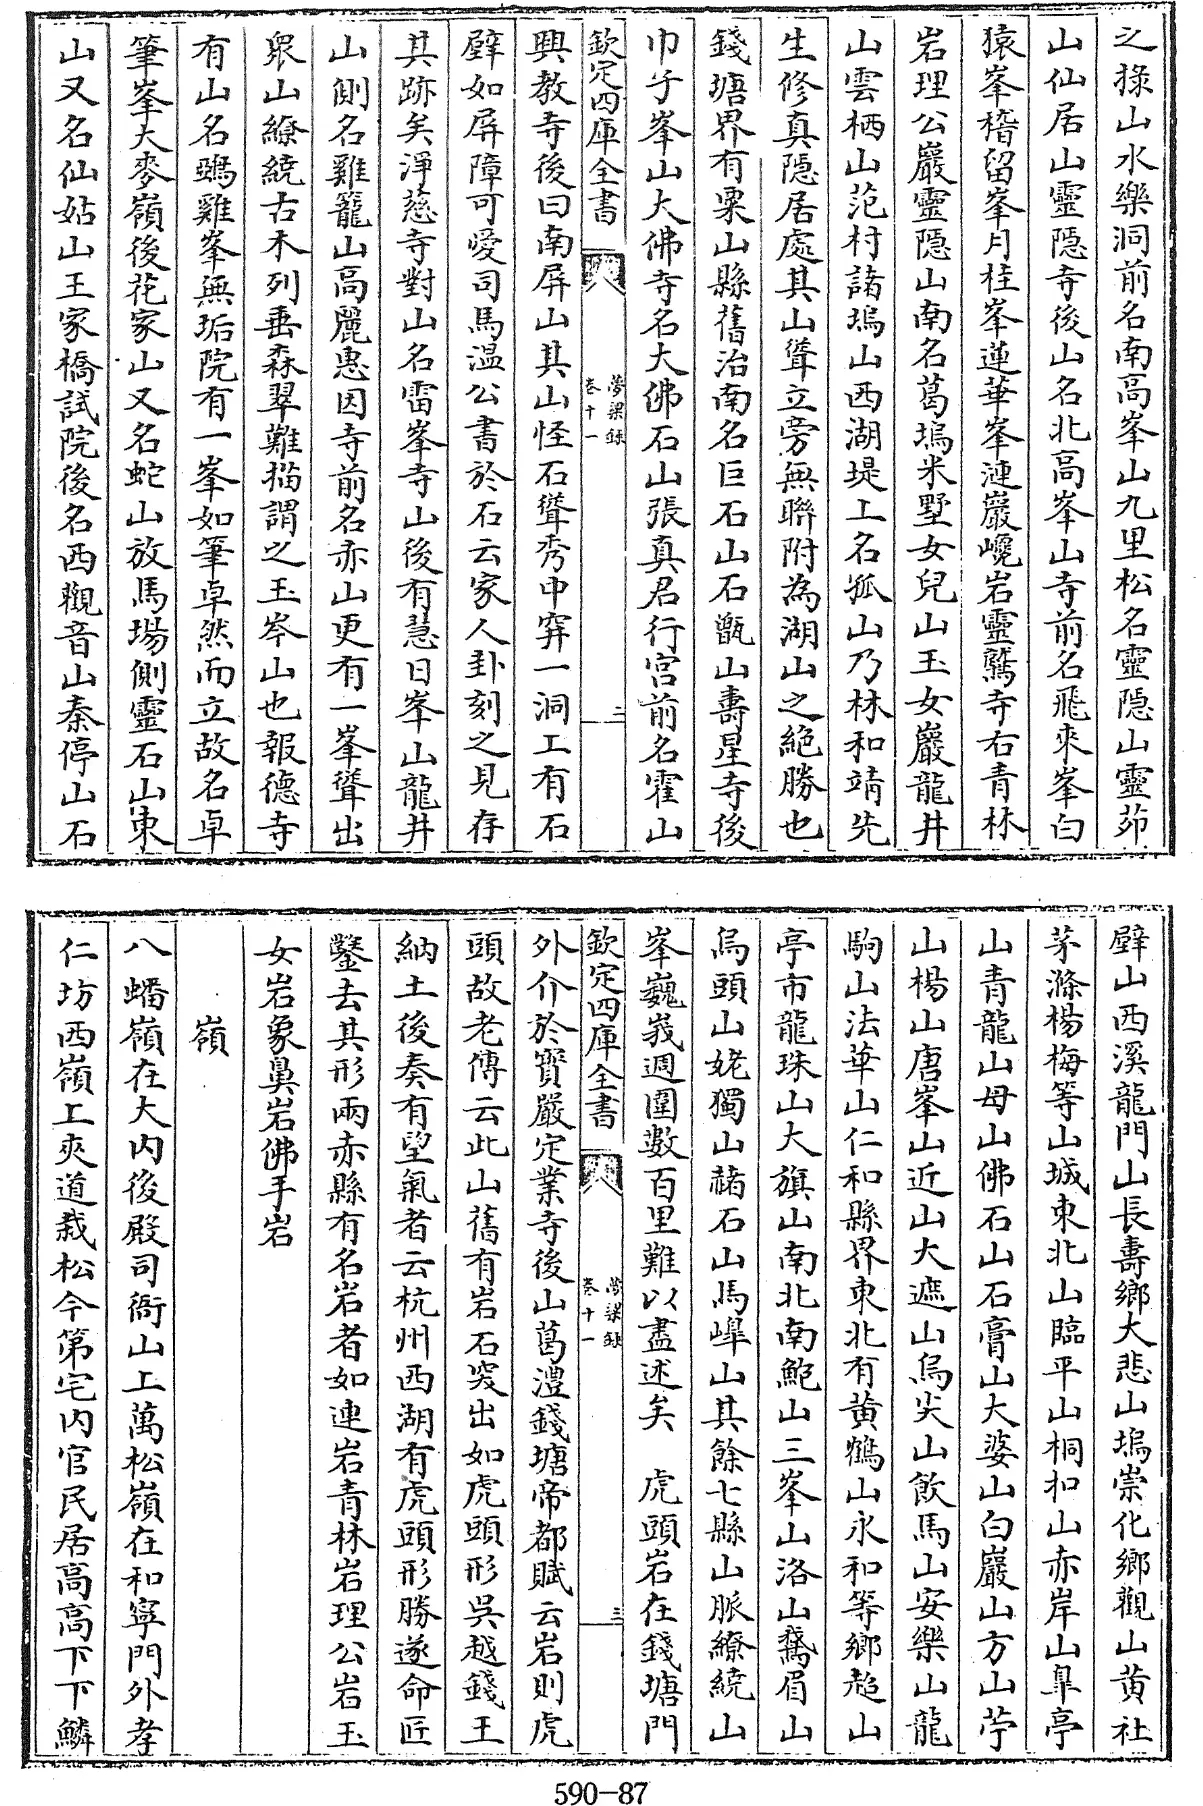 之㧖山水樂洞前名南高峯山九里松名靈隱山靈茆
山仙居山靈隱寺後山名北高峯山寺前名飛來峯白
猿峯稽留峯月桂峯蓮華峯漣巖巉岩靈鷲寺右青林
岩理公巖靈隱山南名葛塢米墅女兒山玉女巖龍井
山雲栖山范村諸塢山西湖堤上名孤山乃林和靖先
生修真隱居處其山聳立旁無聯附為湖山之絶勝也
錢塘界有粟山縣舊治南名巨石山石甑山壽星寺後
巾子峯山大佛寺名大佛石山張真君行宮前名霍山
欽定四庫全書
夢粱録
卷十一
二
興教寺後曰南屏山其山怪石聳秀中穽一洞工有石
壁如屏障可愛司馬温公書於石云家人卦刻之見存
其跡矣淨慈寺對山名雷峯寺山後有慧日峯山龍井
山側名雞籠山高麗惠因寺前名赤山更有一峯聳出
衆山繚繞古木列垂森翠難描謂之玉岑山也報德寺
有山名鵶雞峯無垢院有一峯如筆卓然而立故名卓
筆峯大麥嶺後花家山又名蛇山放馬場側靈石山東
山又名仙姑山王家橋試院後名西觀音山秦停山石
壁山西溪龍門山長壽鄉大悲山塢崇化鄉觀山黄社
茅滌楊梅等山城東北山臨平山桐扣山赤岸山臯亭
山青龍山母山佛石山石膏山大婆山白巖山方山苧
山楊山唐峯山近山大遮山烏尖山飲馬山安樂山龍
駒山法華山仁和縣界東北有黄鶴山永和等鄉超山
亭市龍珠山大旗山南北南鮑山三峯山洛山鵞眉山
烏頭山姥獨山赭石山馬嶂山其餘七縣山脈繚繞山
峯巍峩週圍數百里難以盡述矣　虎頭岩在錢塘門
欽定四庫全書
夢粱録
卷十一
三
外介於寳嚴定業寺後山葛澧錢塘帝都賦云岩則虎
頭故老傳云此山舊有岩石突出如虎頭形吳越錢王
納土後奏有望氣者云杭州西湖有虎頭形勝遂命匠
鑿去其形兩赤縣有名岩者如連岩青林岩理公岩玉
女岩象鼻岩佛手岩
嶺
八蟠嶺在大内後殿司衙山上萬松嶺在和寧門外孝
仁坊西嶺上夾道栽松今第宅内官民居高高下下鱗
590-87